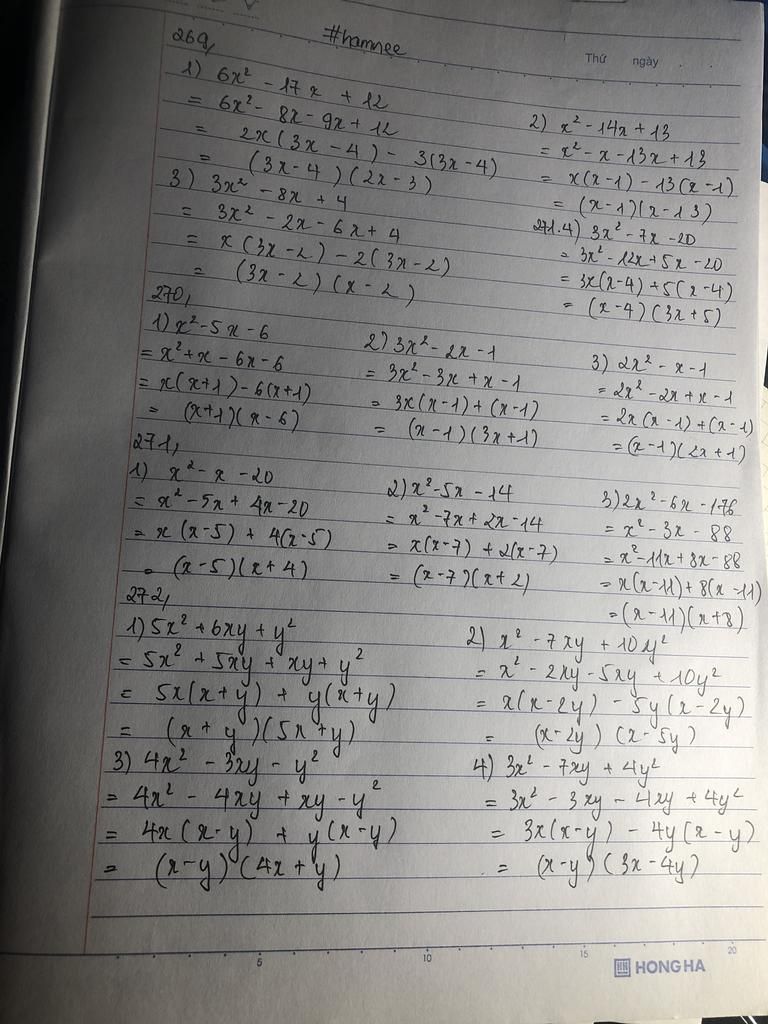 #hamnee
Thứ ngày
269,
1) 6x² - 17x + 12
= 6x² - 8x - 9x + 12
= 2x(3x - 4) - 3(3x - 4)
= (3x - 4)(2x - 3)
2) x² - 14x + 13
= x² - x - 13x + 13
= x(x - 1) - 13(x - 1)
= (x - 1)(x - 13)
3) 3x² - 8x + 4
= 3x² - 2x - 6x + 4
= x(3x - 2) - 2(3x - 2)
= (3x - 2)(x - 2)
271.4) 3x² - 7x - 20
= 3x² - 12x + 5x - 20
= 3x(x - 4) + 5(x - 4)
= (x - 4)(3x + 5)
270,
1) x² - 5x - 6
= x² + x - 6x - 6
= x(x + 1) - 6(x + 1)
= (x + 1)(x - 6)
2) 3x² - 2x - 1
= 3x² - 3x + x - 1
= 3x(x - 1) + (x - 1)
= (x - 1)(3x + 1)
3) 2x² - x - 1
= 2x² - 2x + x - 1
= 2x(x - 1) + (x - 1)
= (x - 1)(2x + 1)
271,
1) x² - x - 20
= x² - 5x + 4x - 20
= x(x - 5) + 4(x - 5)
= (x - 5)(x + 4)
2) x² - 5x - 14
= x² - 7x + 2x - 14
= x(x - 7) + 2(x - 7)
= (x - 7)(x + 2)
3) 2x² - 6x - 176
= x² - 3x - 88
= x² - 11x + 8x - 88
= x(x - 11) + 8(x - 11)
= (x - 11)(x + 8)
272,
1) 5x² + 6xy + y²
= 5x² + 5xy + xy + y²
= 5x(x + y) + y(x + y)
= (x + y)(5x + y)
2) x² - 7xy + 10y²
= x² - 2xy - 5xy + 10y²
= x(x - 2y) - 5y(x - 2y)
= (x - 2y)(x - 5y)
3) 4x² - 3xy - y²
= 4x² - 4xy + xy - y²
= 4x(x - y) + y(x - y)
= (x - y)(4x + y)
4) 3x² - 7xy + 4y²
= 3x² - 3xy - 4xy + 4y²
= 3x(x - y) - 4y(x - y)
= (x - y)(3x - 4y)
5 10 15 20
HONG HA